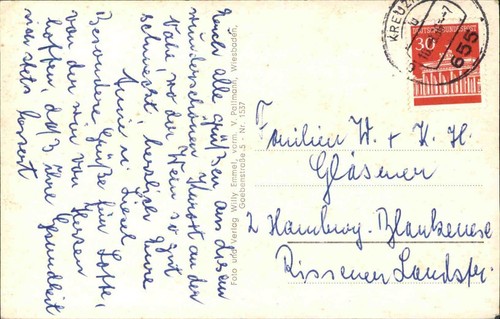 Euch alle grüßen aus diesem
wunderschönen Kurort an der
Nahe, wo der Wein so gut
schmeckt, herzlich Eure
Anne u. Liesel
Besondere Grüße für Lotte,
von der wir von Herzen
hoffen, daß ihre Gesundheit
sich stets bessert
Foto und Verlag Willy Emmel, vorm. V. Pallmann, Wiesbaden,
Goebenstraße 5 - Nr. 1537
KREUZ
655
DEUTSCHE BUNDESPOST
30
Familien W. + K. H.
Gläsener
2 Hamburg-Blankenese
Rissener Landstr.